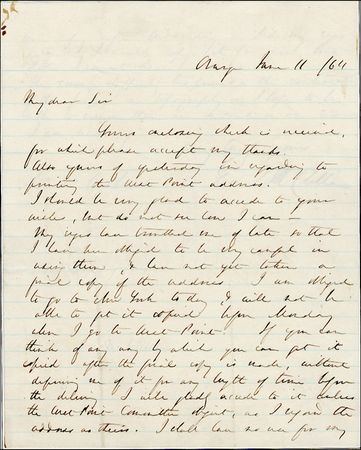 June 11 /64
My dear Sir
Yours enclosing check is received,
for which please accept my thanks.
Also yours of yesterday in regarding to
printing the West Point address.
I should be very glad to accede to your
wishes, but do not see how I can —
My eyes have troubled me of late so that
I have been obliged to be very careful in
using them, & have not yet taken a
final copy of the address. I am obliged
to go to New York to day, & will not be
able to get it copied before Monday
when I go to West Point. If you can
think of any way by which you can get it
copied after the final copy is made, without
depriving me of it for any length of time before
the delivery I will gladly accede to it unless
the West Point Committee object, as I regard the
address as theirs. I shall have no use for my